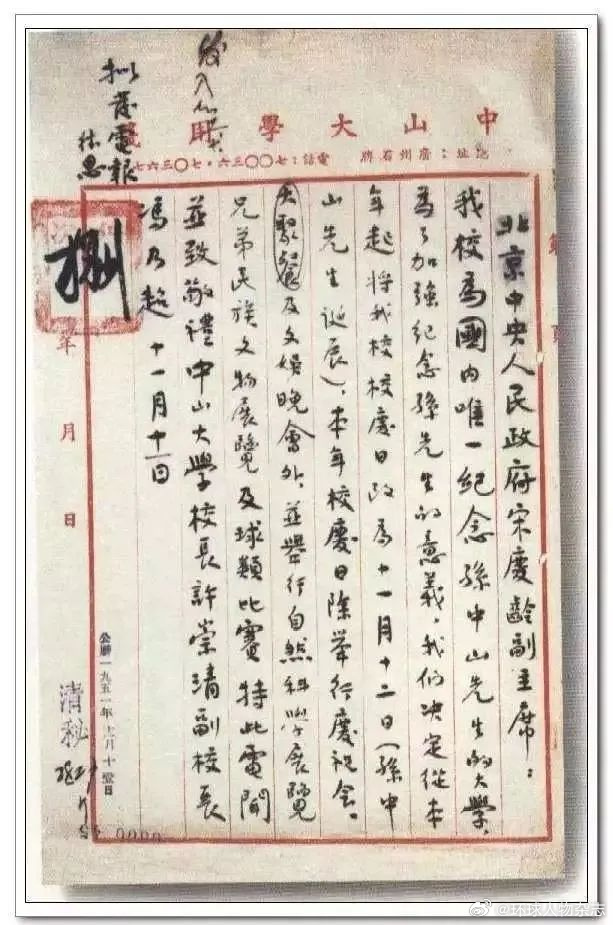 中山大學用箋
地址：廣州石牌　電話：七〇〇三六・七〇三六七
北京中央人民政府宋慶齡副主席：
我校為國內唯一紀念孫中山先生的大學，
為了加強紀念孫先生的意義，我们决定從本
年起將我校校慶日改為十一月十二日（孫中
山先生誕辰），本年校慶日除举行慶祝会、
大聚餐及文娱晚會外，並舉行自然科學展覽
兄弟民族文物展覽及球類比賽特此電聞
並致敬禮中山大學校長許崇清副校長
馮乃超十一月十一日
擬發電報
年 月 日
公曆一九五一年
清秘
0000
@环球人物杂志